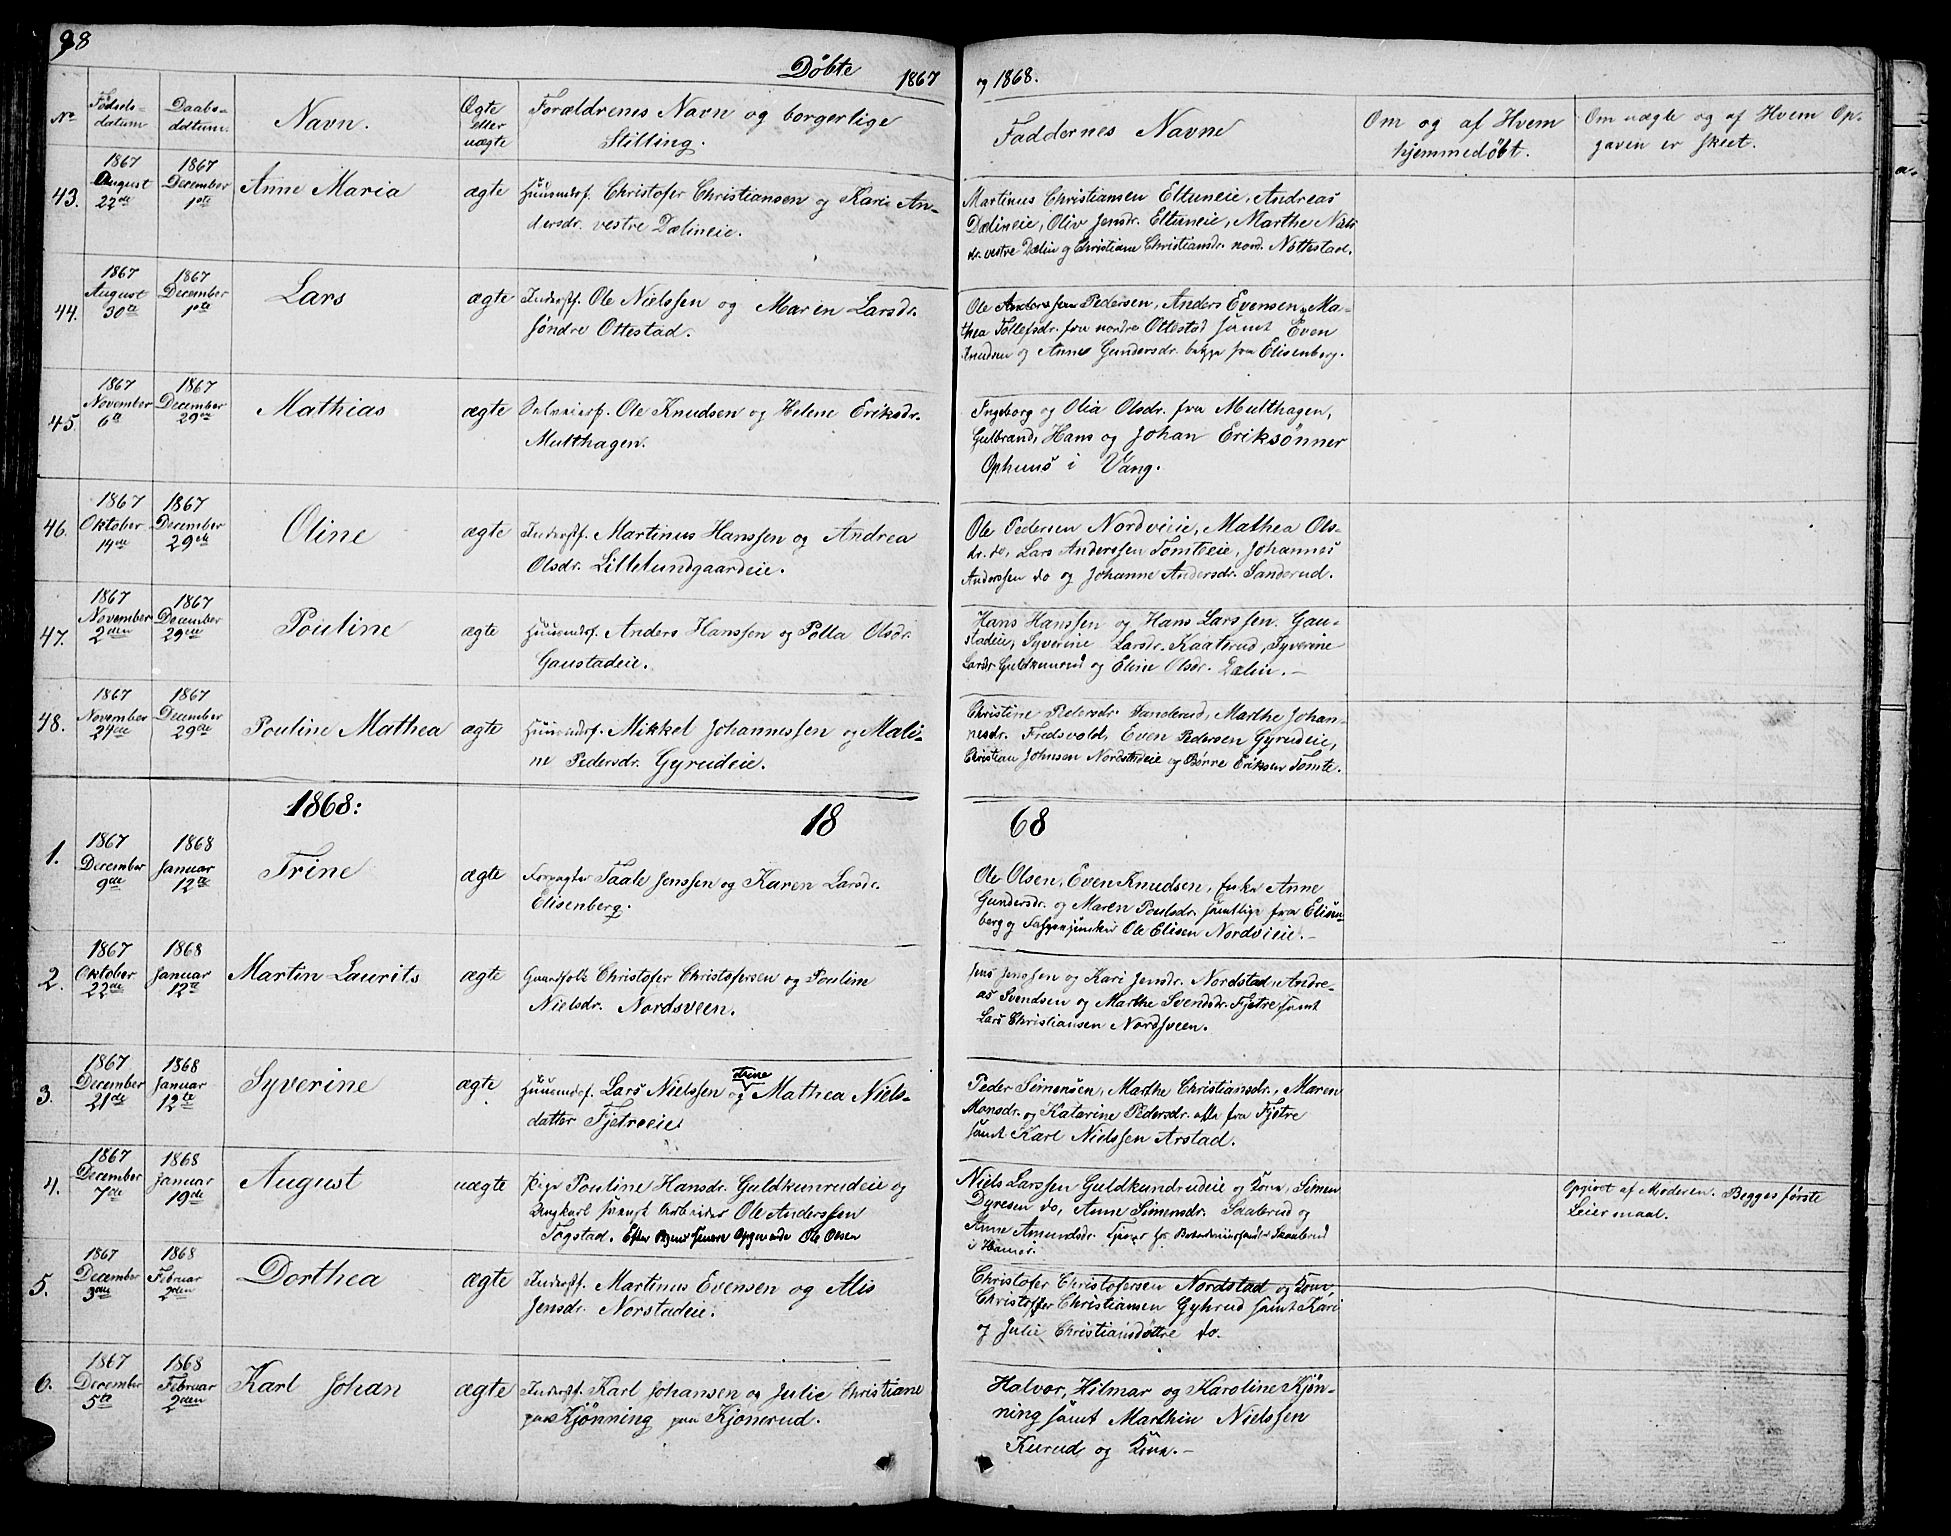 98
Døbte 1867 og 1868.
No
Fødsels-
datum
Daabs-
datum.
Navn.
Ægte
eller
uægte
Forældrenes Navn og borgerlige
Stilling.
Faddernes Navne
Om og af Hvem
hjemmedøbt.
Om uægte og af Hvem Op-
gaven er skeet.
43.
1867
August
22de
1867
December
1ste
Anne Maria
ægte
Huusmdf. Christofer Christiansen og Kari An-
dersdr. vestre Dælineie.
Martinus Christiansen Eltuneie, Andreas
Dælineie, Oliv Jensdr. Eltuneie, Marthe Niels
dr. vestre Dælin og Christiane Christiansdr. nord. Nøttestad.
44.
1867
August
30te
1867
December
1ste
Lars
ægte
Inderstf. Ole Nielssen og Maren Larsdr.
søndre Ottestad.
Ole Pedersen, Anders Evensen, Ma-
thea Tollefsdr. fra nordre Ottestad samt Even
Knudsen og Anne Gundersdr. begge fra Elisenberg.
45.
1867
November
6te
1867
December
29de
Mathias
ægte
Selveierf. Ole Knudsen og Helene Eriksdr.
Mutthagen.
Ingeborg og Olia Olsdr. fra Mutthagen,
Gulbrand, Hans og Johan Eriksønner
Ophuus i Vang.
46.
1867
Oktober
14de
1867
December
29de
Oline
ægte
Inderstf. Martinus Hanssen og Andrea
Olsdr. Lillelundgaardeie.
Ole Pedersen Nordveieie, Mathea Ols-
dr. do, Lars Anderssen Tomteeie, Johannes
Anderssen do og Johanne Andersdr. Sanderud.
47.
1867
November
2den
1867
December
29de
Pouline
ægte
Huusmdf. Anders Hanssen og Polla Olsdr.
Gaustadeie.
Hans Hanssen og Hans Larssen Gau-
stadeie, Syverine Larsdr. Kaaterud, Syverine
Larsdr. Guldkunrud og Eline Olsdr. Dælin. -
48.
1867
November
24de
1867
December
29de
Pouline Mathea
ægte
Huusmdf. Mikkel Johannessen og Mali-
ne Pedersdr. Gyrudeie.
Christine Pedersdr. Sanderud, Marthe Johan-
nesdr. Fredsvold, Even Pedersen Gyrudeie,
Christian Johnsen Nordstadeie og Børre Eriksen Tomte.
1868:
18 68
1.
1867
December
9de
1868
Januar
12te
Trine
ægte
Forpagter Taale Jenssen og Karen Larsdr.
Elisenberg.
Ole Olsen, Even Knudsen, Enke Anne
Gundersdr. og Maren Poulsdr. samtlige fra Elisen-
berg og Ole Elisen Nordvieie. -
2.
1867
Oktober
22de
1868
Januar
12te
Martin Laurits
ægte
Gaardfolk Christofer Christofersen og Pouline
Nielsdr. Nordsveen.
Jens Jenssen og Kari Jensdr. Nordstad, Andre-
as Svendsen og Marthe Svendsdr. Fjetre, samt
Lars Christiansen Nordsveen.
3.
1867
December
21de
1868
Januar
12te
Syverine
ægte
Huusmdf. Lars Nielssen og Trine Mathea Niels-
datter Fjetreeie
Peder Simensen, Marthe Christiansdr., Maren
Monsdr. og Katarine Pedersdr. alle fra Fjetre
samt Karl Nielssen Arstad.
4.
1867
December
7de
1868
Januar
19de
August
uægte
Pige Pouline Hansdr. Guldkunrudeie og
Ungkarl Arbeider Ole Anderssen
Togstad. Efter senere Opgivende Ole Olsen
Niels Larssen Guldkundrudeie og Kone, Simen
Dyresen do, Anne Simensdr. Skaberud og
Anne Amundsdr. Tjener
i Hamar.
Opgivet af Moderen. Begges første
Leiermaal.
5.
1867
December
3die
1868
Februar
2den
Dorthea
ægte
Inderstf. Martinus Evensen og Alis
Jensdr. Norstadeie.
Christofer Christofersen Nordstad og Kone,
Christoffer Christiansen Gyhrud samt Kari
og Julie Christiansdøttre do.
6.
1867
December
5te
1868
Februar
2den
Karl Johan
ægte
Inderstf. Karl Johansen og Julie Christiane
Kjønning paa Kjonerud.
Halvor, Hilmar og Karoline Kjøn-
ning samt Marthin Nielssen
Kurud og Kone. -